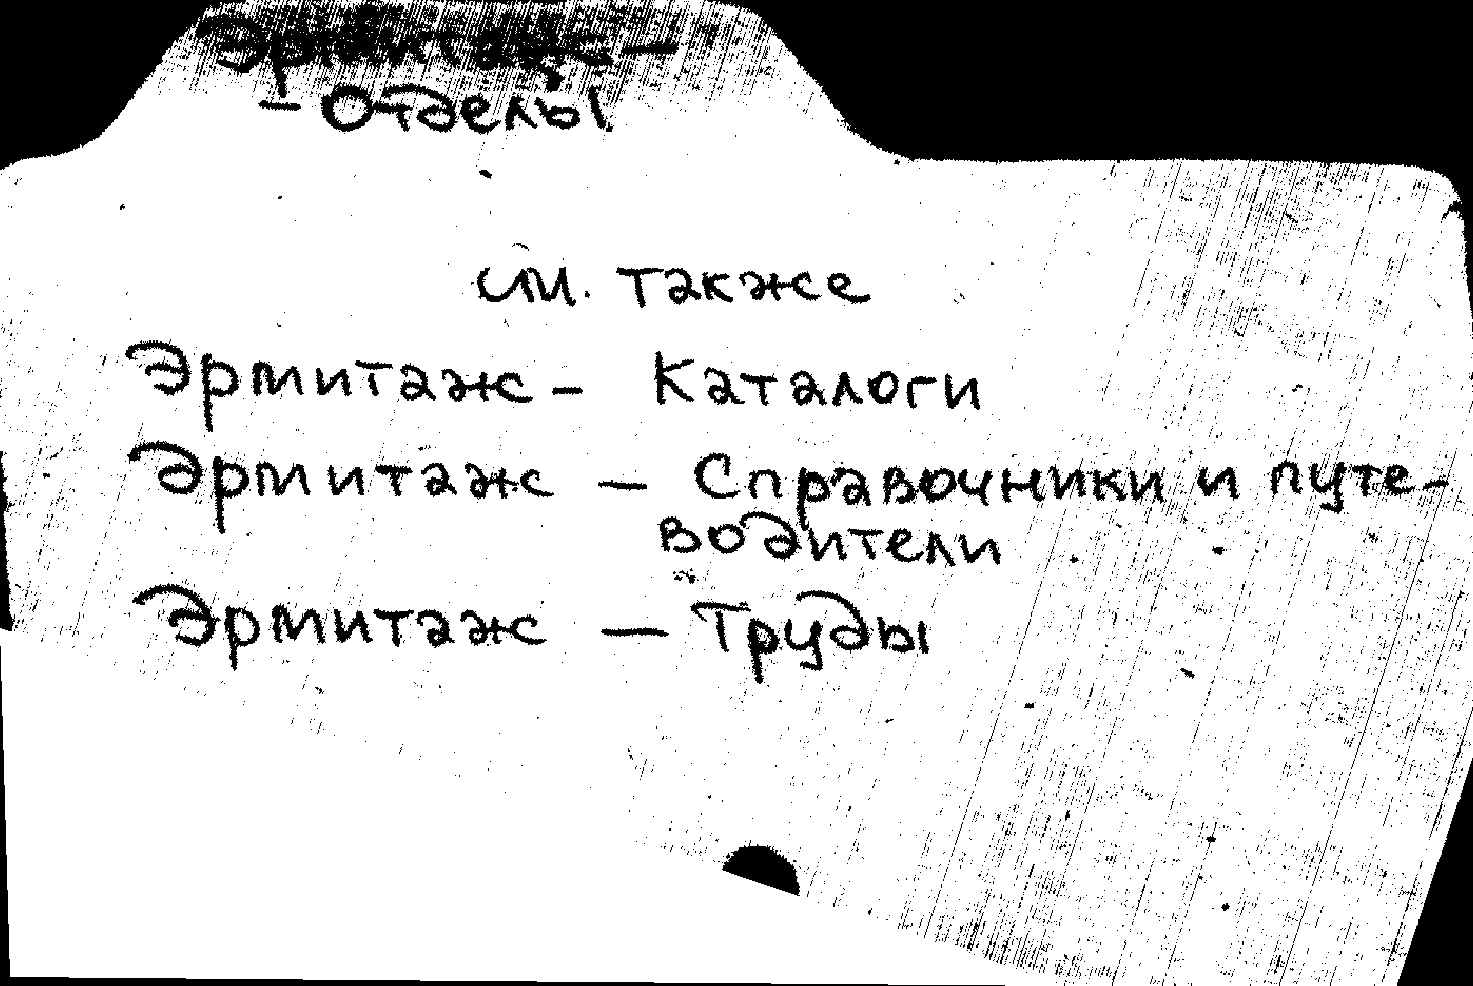 Эрмитаж –
– Отделы
см. также
Эрмитаж – Каталоги
Эрмитаж – Справочники и путе-
водители
Эрмитаж – Труды